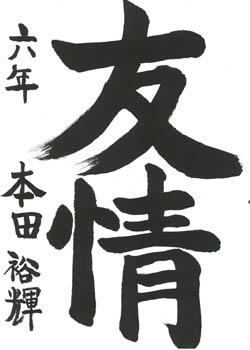 友情
六年 本田裕輝